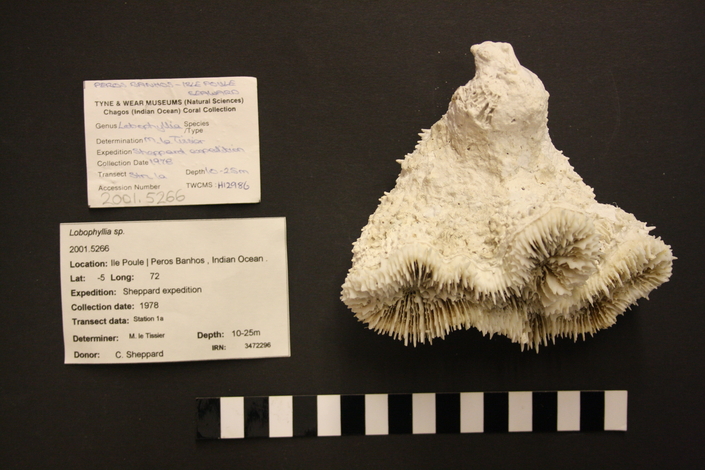 PEROS BANHOS - ILE POULE
SEAWARD
TYNE & WEAR MUSEUMS (Natural Sciences)
Chagos (Indian Ocean) Coral Collection
Genus Lobophyllia Species
/Type
Determination M. le Tissier
Expedition Sheppard expedition
Collection Date 1978
Transect Stn. 1a Depth 10-25m
Accession Number TWCMS : H12986
2001.5266
Lobophyllia sp.
2001.5266
Location: Ile Poule | Peros Banhos , Indian Ocean .
Lat: -5 Long: 72
Expedition: Sheppard expedition
Collection date: 1978
Transect data: Station 1a
Determiner: M. le Tissier Depth: 10-25m
Donor: C. Sheppard IRN: 3472296